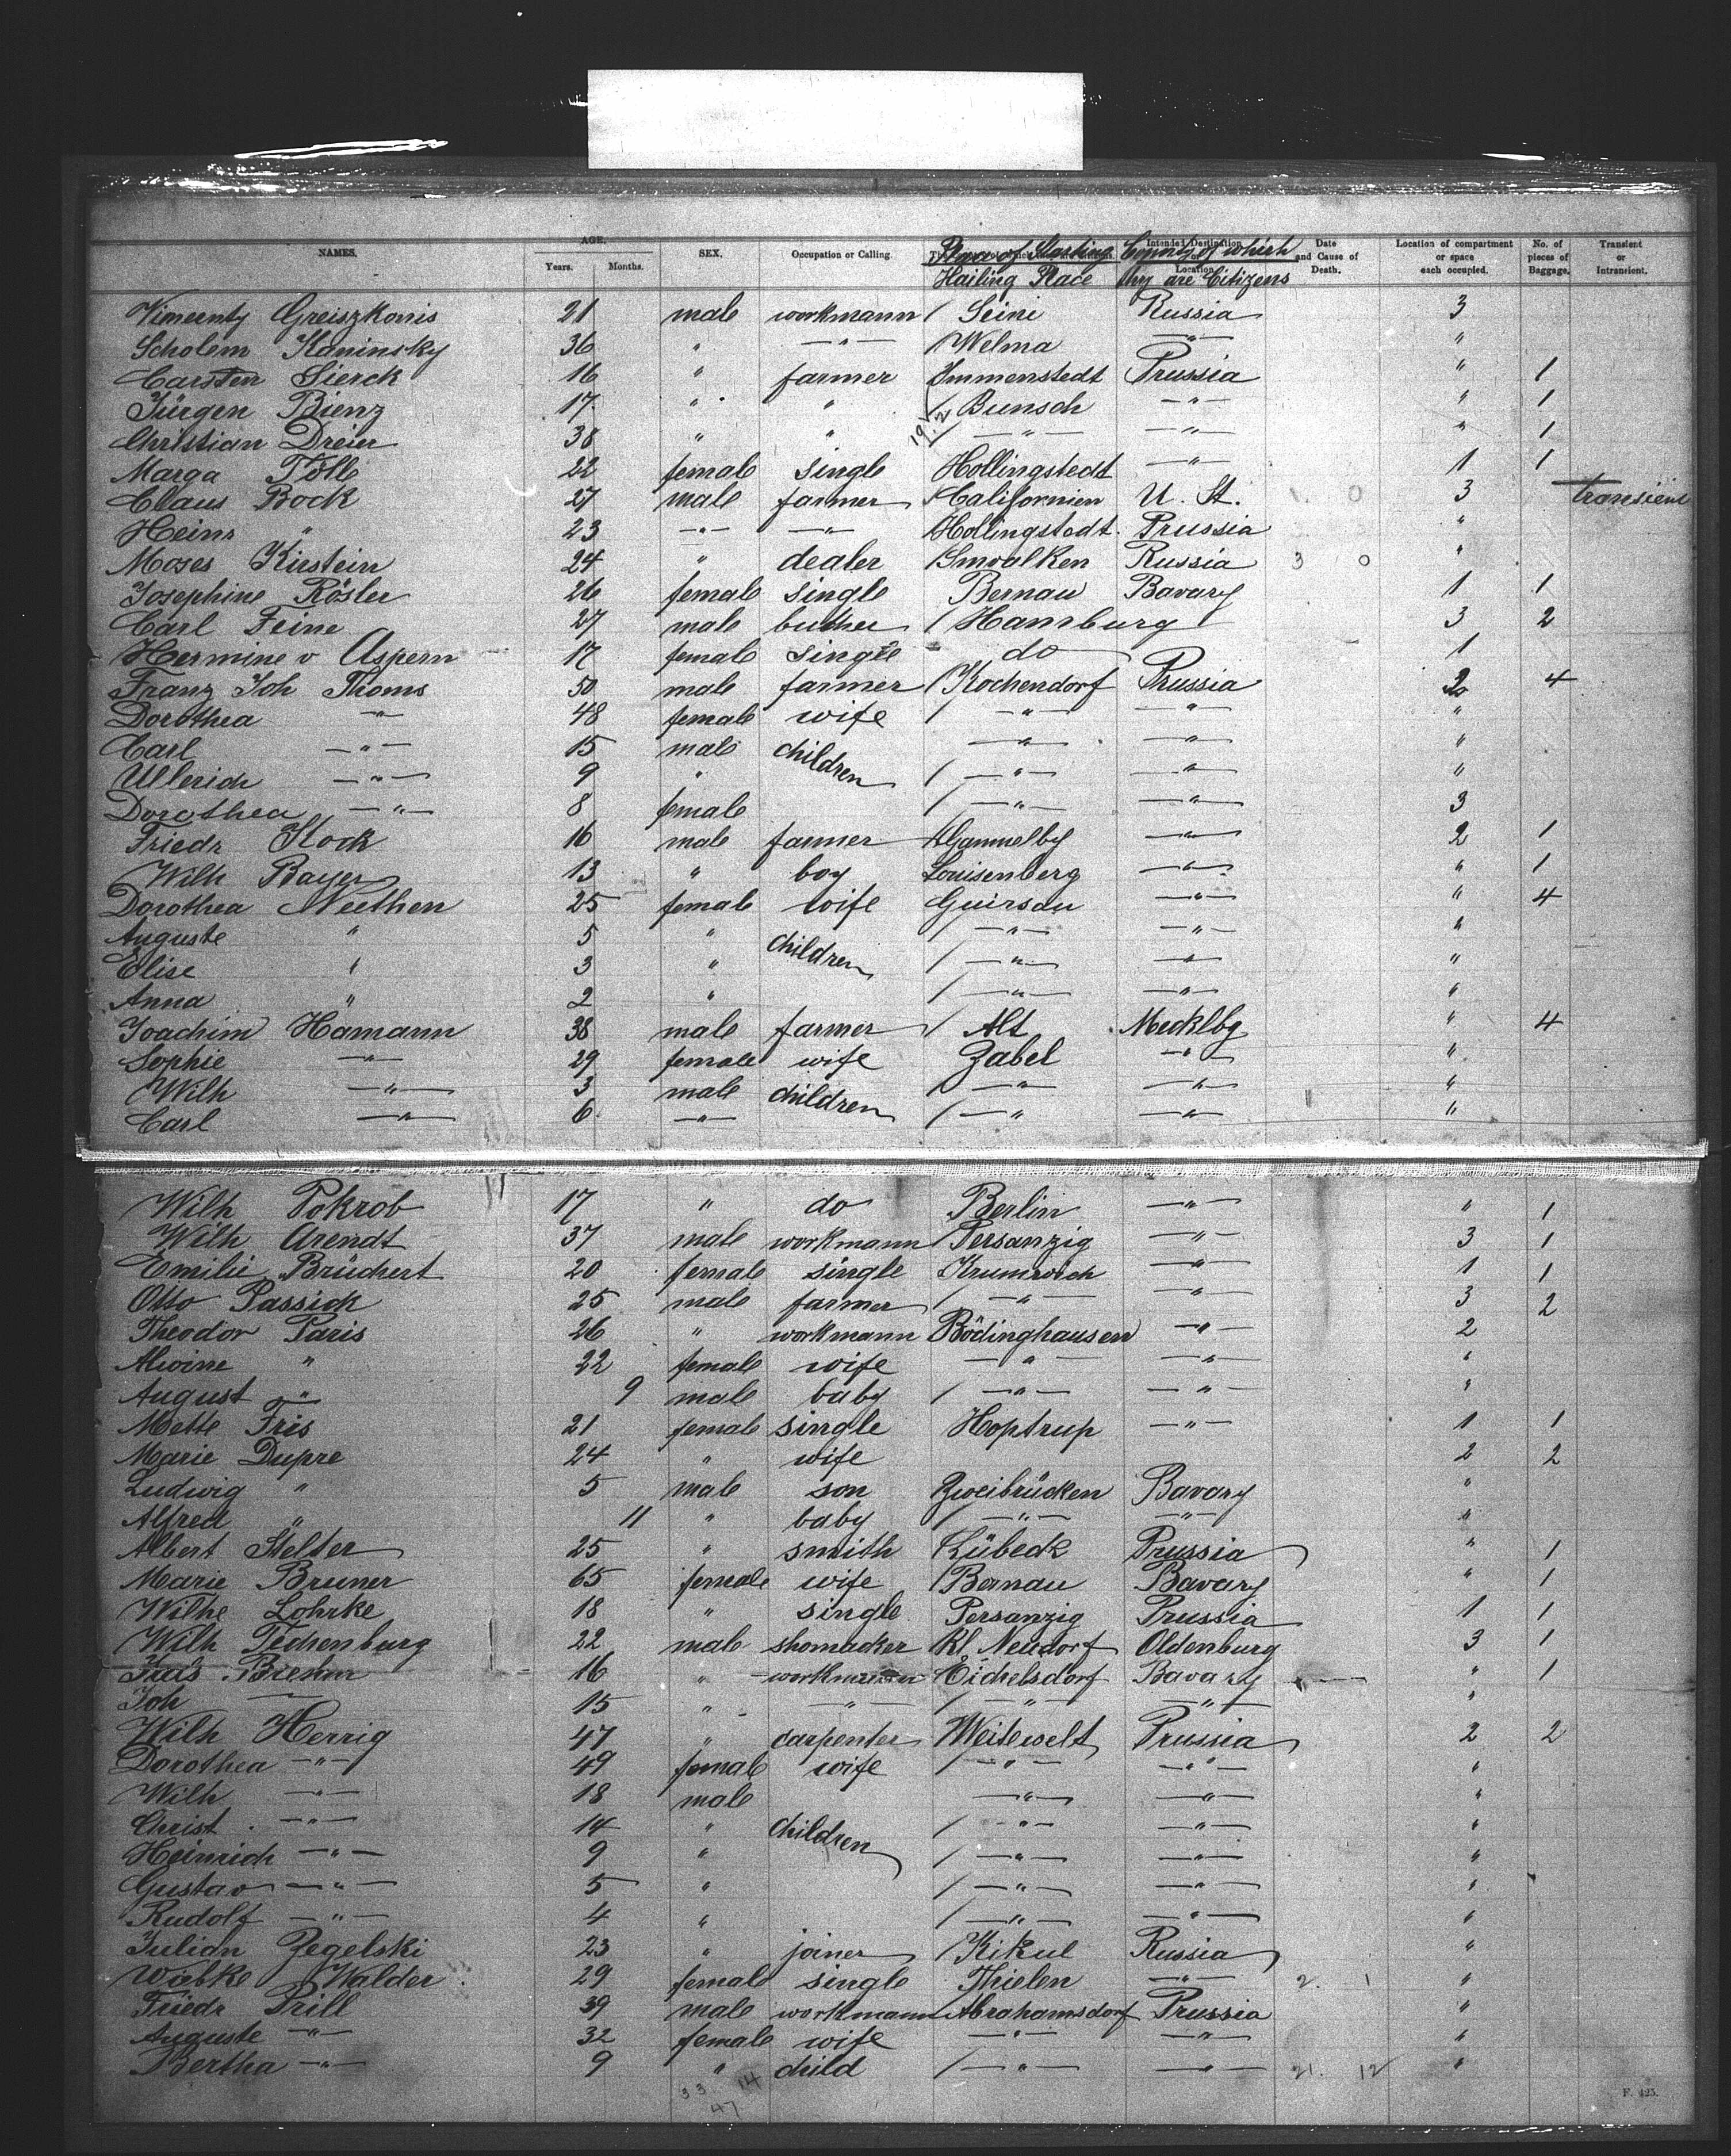 NAMES. AGE. Years. Months. SEX. Occupation or Calling. Place of Starting Hailing Place Intended Destination Location County of which they are Citizens Date and Cause of Death. Location of compartment or space each occupied. No. of pieces of Baggage. Transient or Intransient.
Greiszkonis 21 male workmann / Seini Russia 3
Scholem Kaninsky 36 " —"— / Welma —"— "
Carsten Sierck 16 " farmer Immenstedt Prussia " 1
Jürgen Bienz 17 " " / Bunsch —"— " 1
Christian Dreier 38 " " / —"— —"— " 1
Marga Tölle 22 female single Hollingstedt —"— 1 1
Claus Bock 27 male farmer Californien U. St. 0 3 transient
Heins " 23 —"— —"— Hollingstedt Prussia "
Moses Kirstein 24 " dealer Smvalken Russia 3 0 "
Josephine Rösler 26 female single Bernau Bavary 1 1
Carl Feine 27 male / Hamburg 3 2
Hermine v Aspern 17 female single do 1
Franz Joh Thoms 50 male farmer / Kochendorf Prussia 2 4
Dorothea —"— 48 female wife / —"— —"— "
Carl —"— 15 male children —"— —"— "
Ullerich —"— 9 " / —"— —"— "
Dorothea —"— 8 female / —"— —"— 3
Friedr Stock 16 male farmer Gammelby —"— 2 1
Wilh Bayer 13 " boy Louisenberg —"— " 1
Dorothea Neethen 25 female wife Guirsau —"— " 4
Auguste " 5 " children / —"— —"— "
Elise " 3 " / —"— —"— "
Anna " 2 " / —"— —"— "
Joachim Hamann 38 male farmer / Alt Mecklbg " 4
Sophie —"— 29 female wife Zabel —"— "
Wilh —"— 3 male children / —"— —"— "
Carl —"— 6 —"— / —"— —"— "
Wilh Pokrob 17 " do Berlin —"— " 1
Wilh Arendt 37 male workmann / Persanzig —"— 3 1
Emilie Brüchert 20 female single —"— 1 1
Otto Passick 25 male farmer / —"— —"— 3 2
Theodor Paris 26 " workmann Bödinghausen —"— 2
Alwine " 22 female wife —"— —"— "
August " 9 male baby / —"— —"— "
Mette Fris 21 female single Hoptrup —"— 1 1
Marie Dupre 24 " wife 2 2
Ludwig " 5 male son Zweibrücken Bavary "
Alfred " 11 " baby / —"— —"— "
Albert Stelter 25 " smith Lübeck Prussia " 1
Marie Bruner 65 female wife / Bernau Bavary " 1
Wilhe Lohrke 18 " single Persanzig Prussia 1 1
Wilh Techenburg 22 male shomacker Kl. Neudorf Oldenburg 3 1
Biehm 16 " workmann Eichelsdorf Bavary " 1
Joh —— 15 " —"— / —"— —"— "
Wilh Herrig 47 " carpenter Weitewelt Prussia 2 2
Dorothea —"— 49 female wife / —"— —"— "
Wilh —"— 18 male —"— —"— "
Christ. —"— 14 " children / —"— —"— "
Heinrich —"— 9 " / —"— —"— "
Gustav —"— 5 " / —"— —"— "
Rudolf —"— 4 " / —"— —"— "
Julian Zegelski 23 " joiner / Kikul Russia "
Wiebke Walder 29 female single Thielen —"— 2. 1 "
Friedr Prill 39 male workmann Abrahamsdorf Prussia "
Auguste —"— 32 female wife —"— —"— "
Bertha —"— 9 " child / —"— —"— 21. 12 "
33 14
47
F. 425.